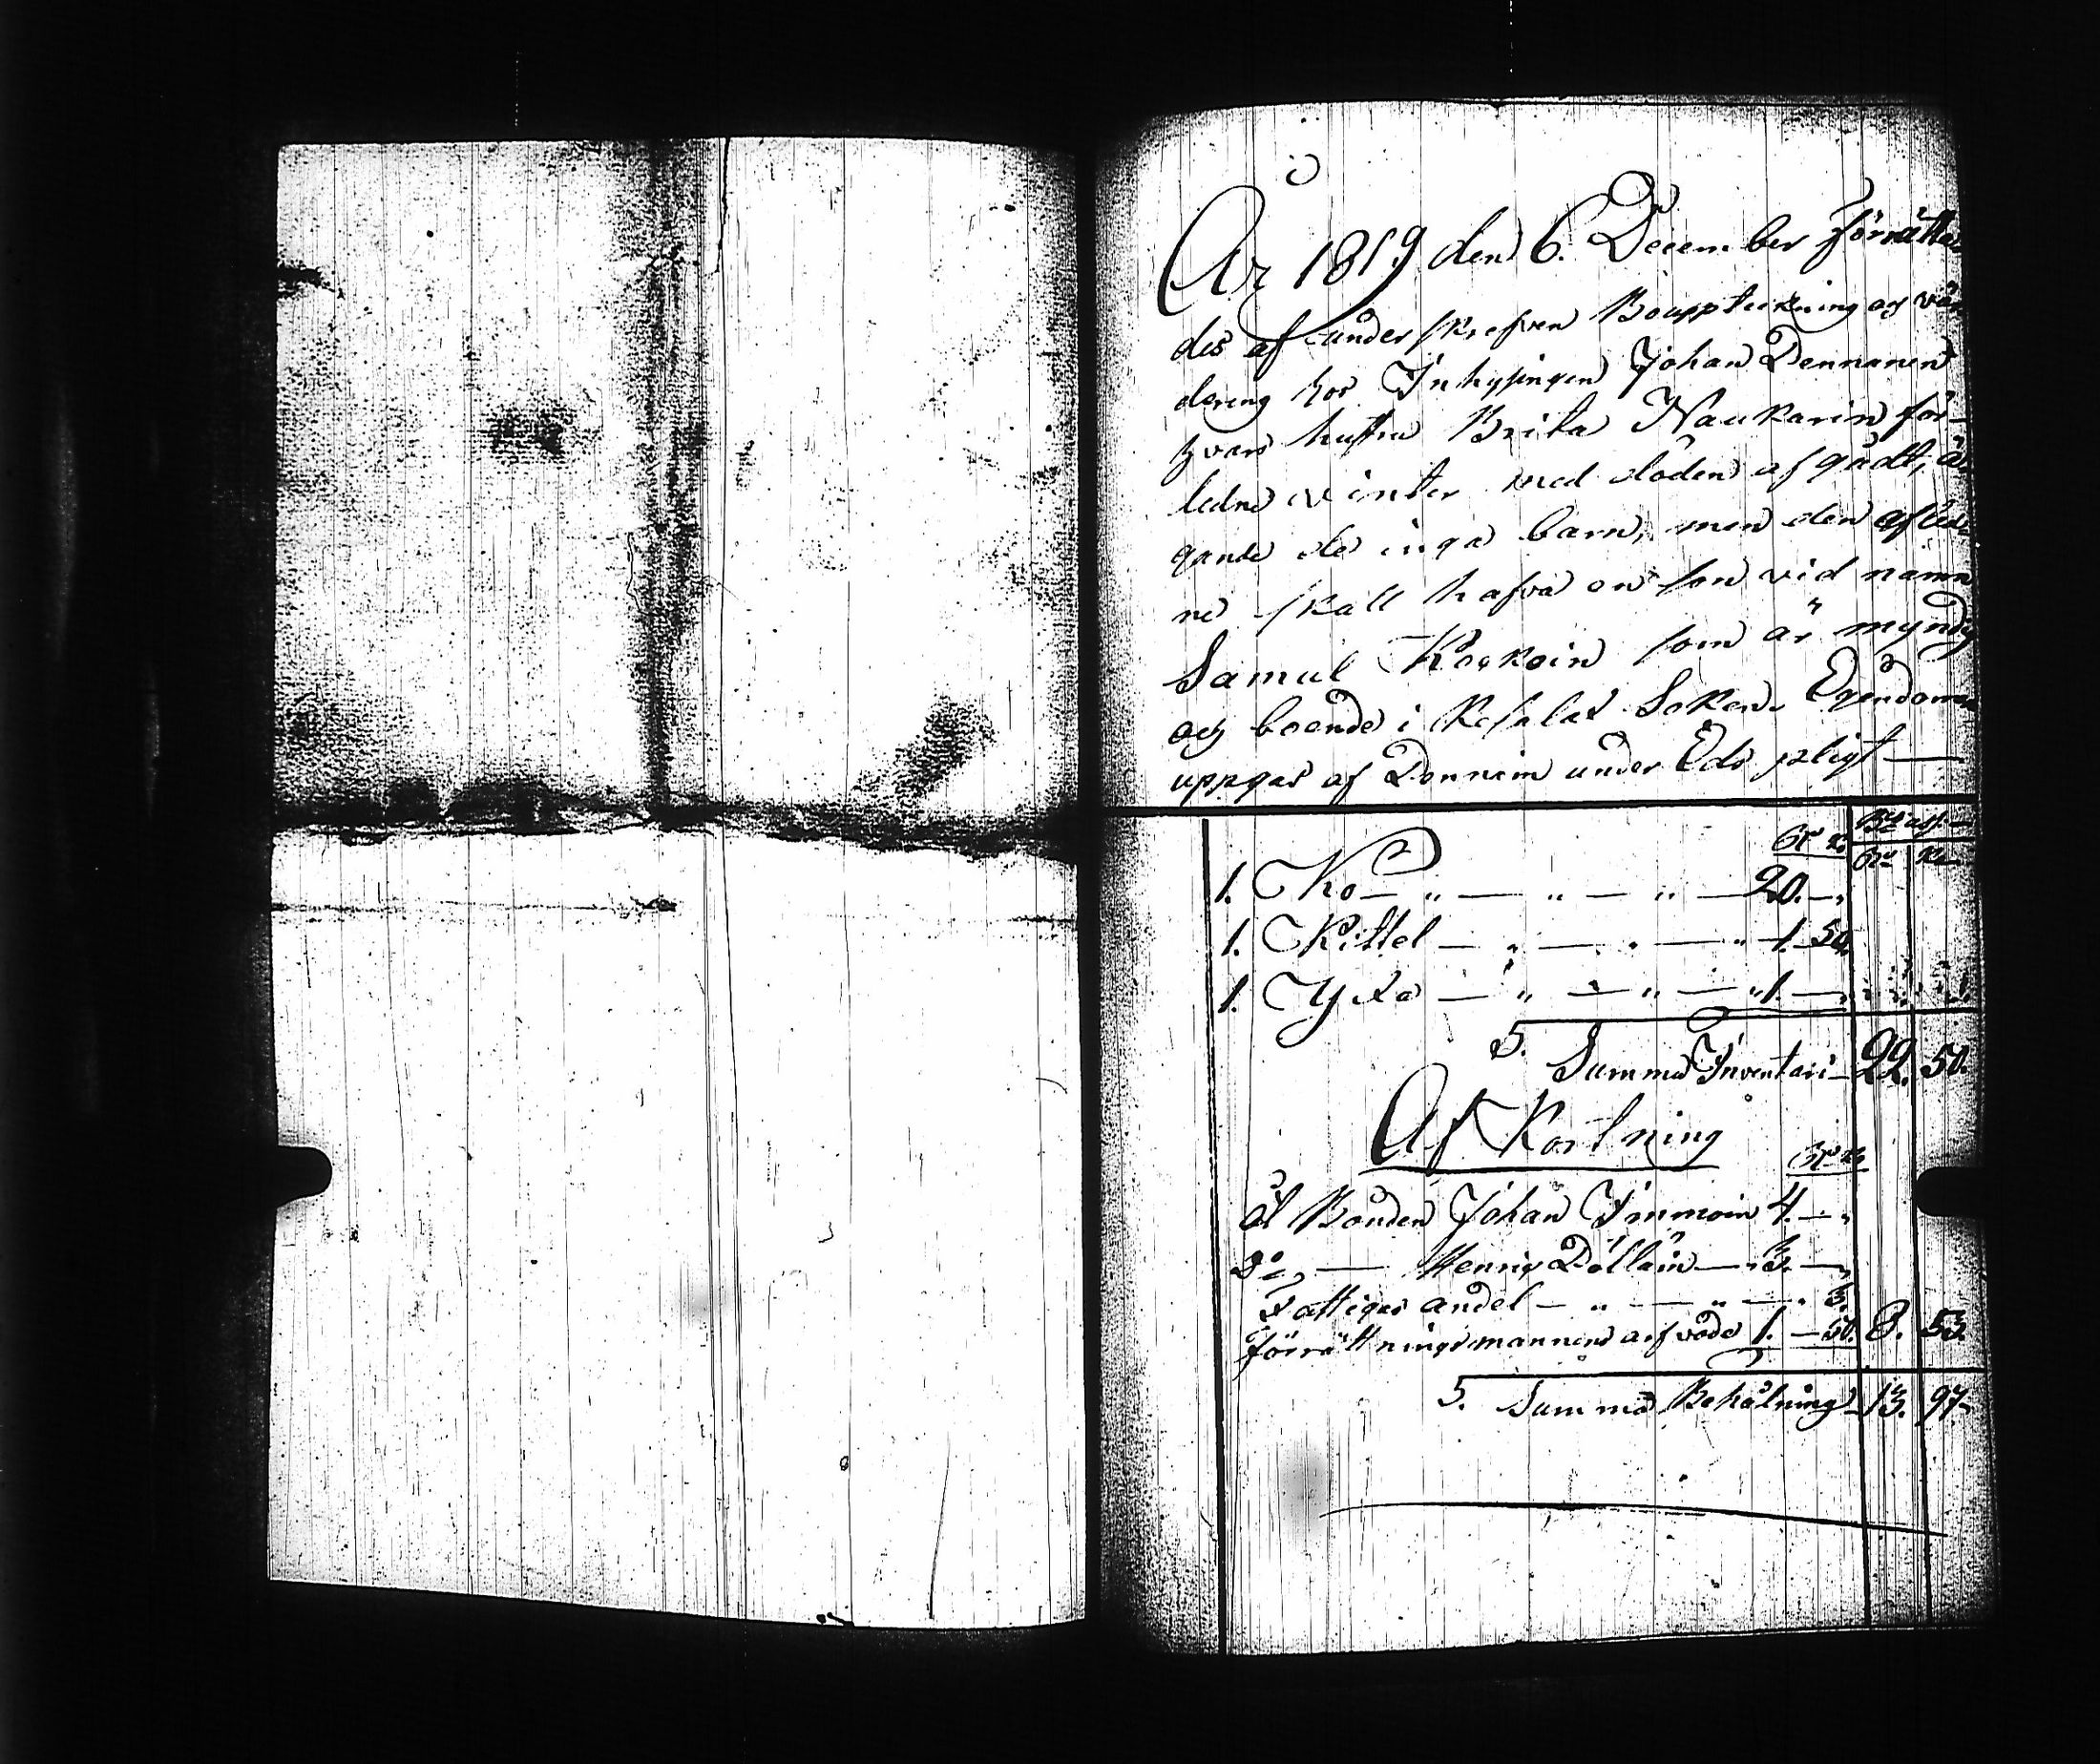 År 1819 den 6. December förrätta-
des af underskrefven Bouppteckning og vär
dering hos Inhysingen Johan Dennanen
hvars hustru Brita Naukarin för-
ledne vinter med döden afgådt, ä
gande de inga barn, men den afled
ne skall hafva en son vid namn
Samul Koskoin som är myndig
och boende i Kesalax Soken. Egendomen
uppgas af Dennein under Eds pligt —
1. Ko — " — " — " — 20. — "
1. Kittel — " — " — " 1. 50.
1. Yxa — " — " — " 1. — "
S. Summa Inventari — 22. 50.
Af Kortning
åt Bonden Johan Immoin 4. — "
Do — Henrix Dölläin — " 3. — "
Fattigas andel — " — " — " 3.
förrättningsmannens arfvode 1. — 50. 8. 53.
S. Summa Behålning 13. 97.